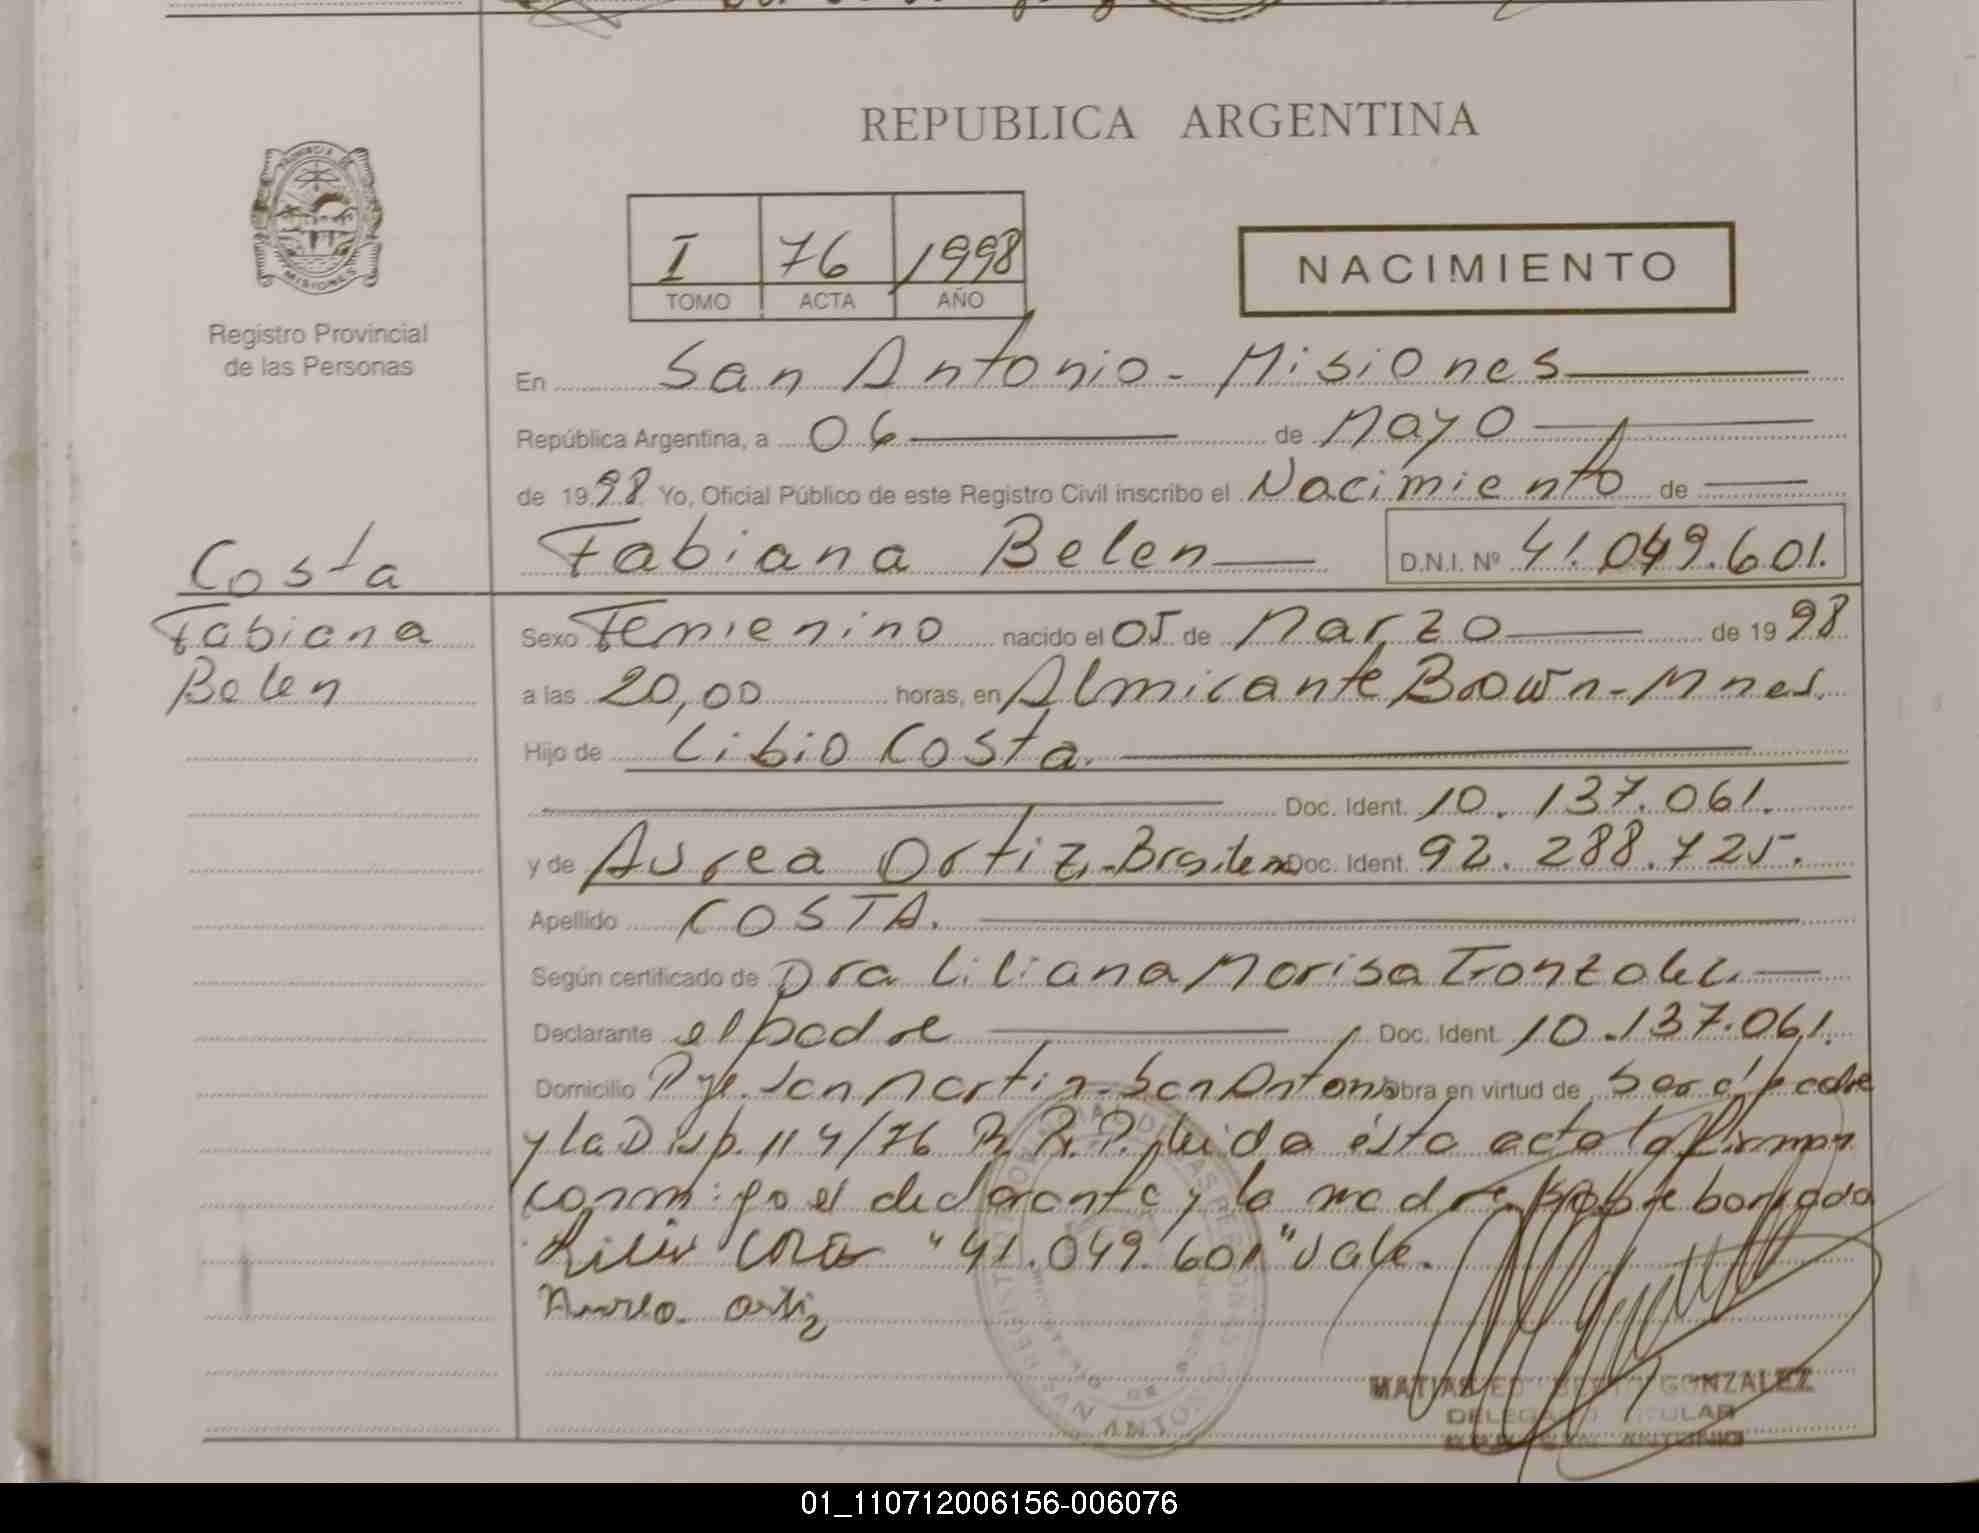 REPUBLICA ARGENTINA
PROVINCIA DE
MISIONES
Registro Provincial
de las Personas
I 76 1998
TOMO ACTA AÑO
NACIMIENTO
En San Antonio - Misiones
República Argentina, a 06 de Mayo
de 1998 Yo, Oficial Público de este Registro Civil inscribo el Nacimiento de
Fabiana Belen D.N.I. Nº 41.049.601.
Costa
Fabiana
Belen
Sexo Femenino nacido el 05 de Marzo de 1998
a las 20,00 horas, en Almirante Brown - Mnes.
Hijo de Libio Costa.
Doc. Ident. 10.137.061.
y de Aurea Ortiz - Brasilera Doc. Ident. 92.288.725.
Apellido COSTA.
Según certificado de Dra Liliana Marisa Gonzalez
Declarante el padre Doc. Ident. 10.137.061.
Domicilio Pje. San Martin - San Antonio Obra en virtud de ser el padre
y la Disp. 114/76 R.R.P. Leida ésta acta la firman
conmigo el declarante y la madre sobre borrado
"41.049.601" Vale.
Aurea Ortiz
GONZALEZ
SAN ANTONIO
01_110712006156-006076